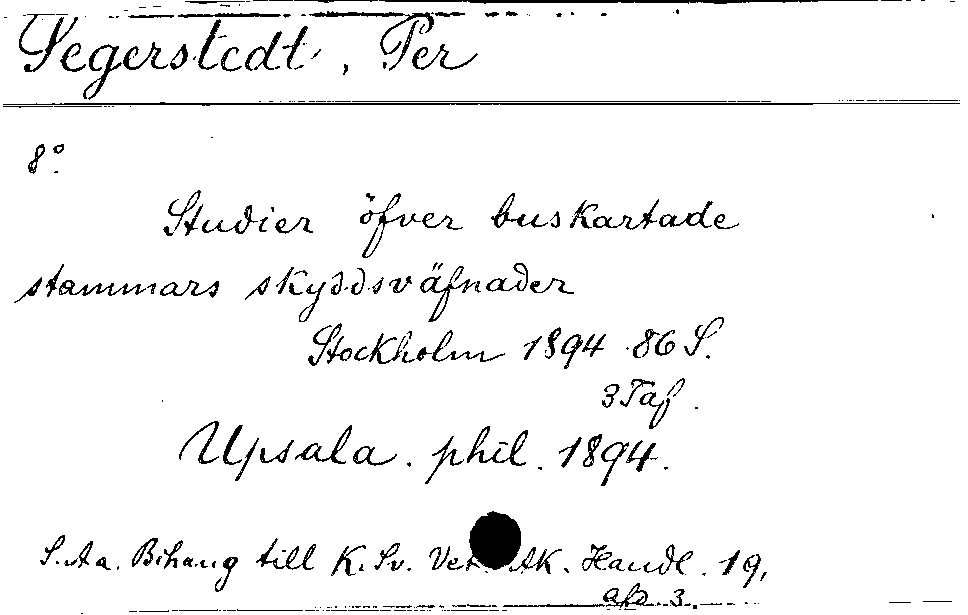 Segerstedt, Per
8°.
Studier öfver buskartade
stammars skyddsväfnader
Stockholm 1894 86 S.
3 Taf.
Upsala. phil. 1894.
S. A a. Bihang till K. Sv. Vet. Ak. Handl. 19,
afd. 3.